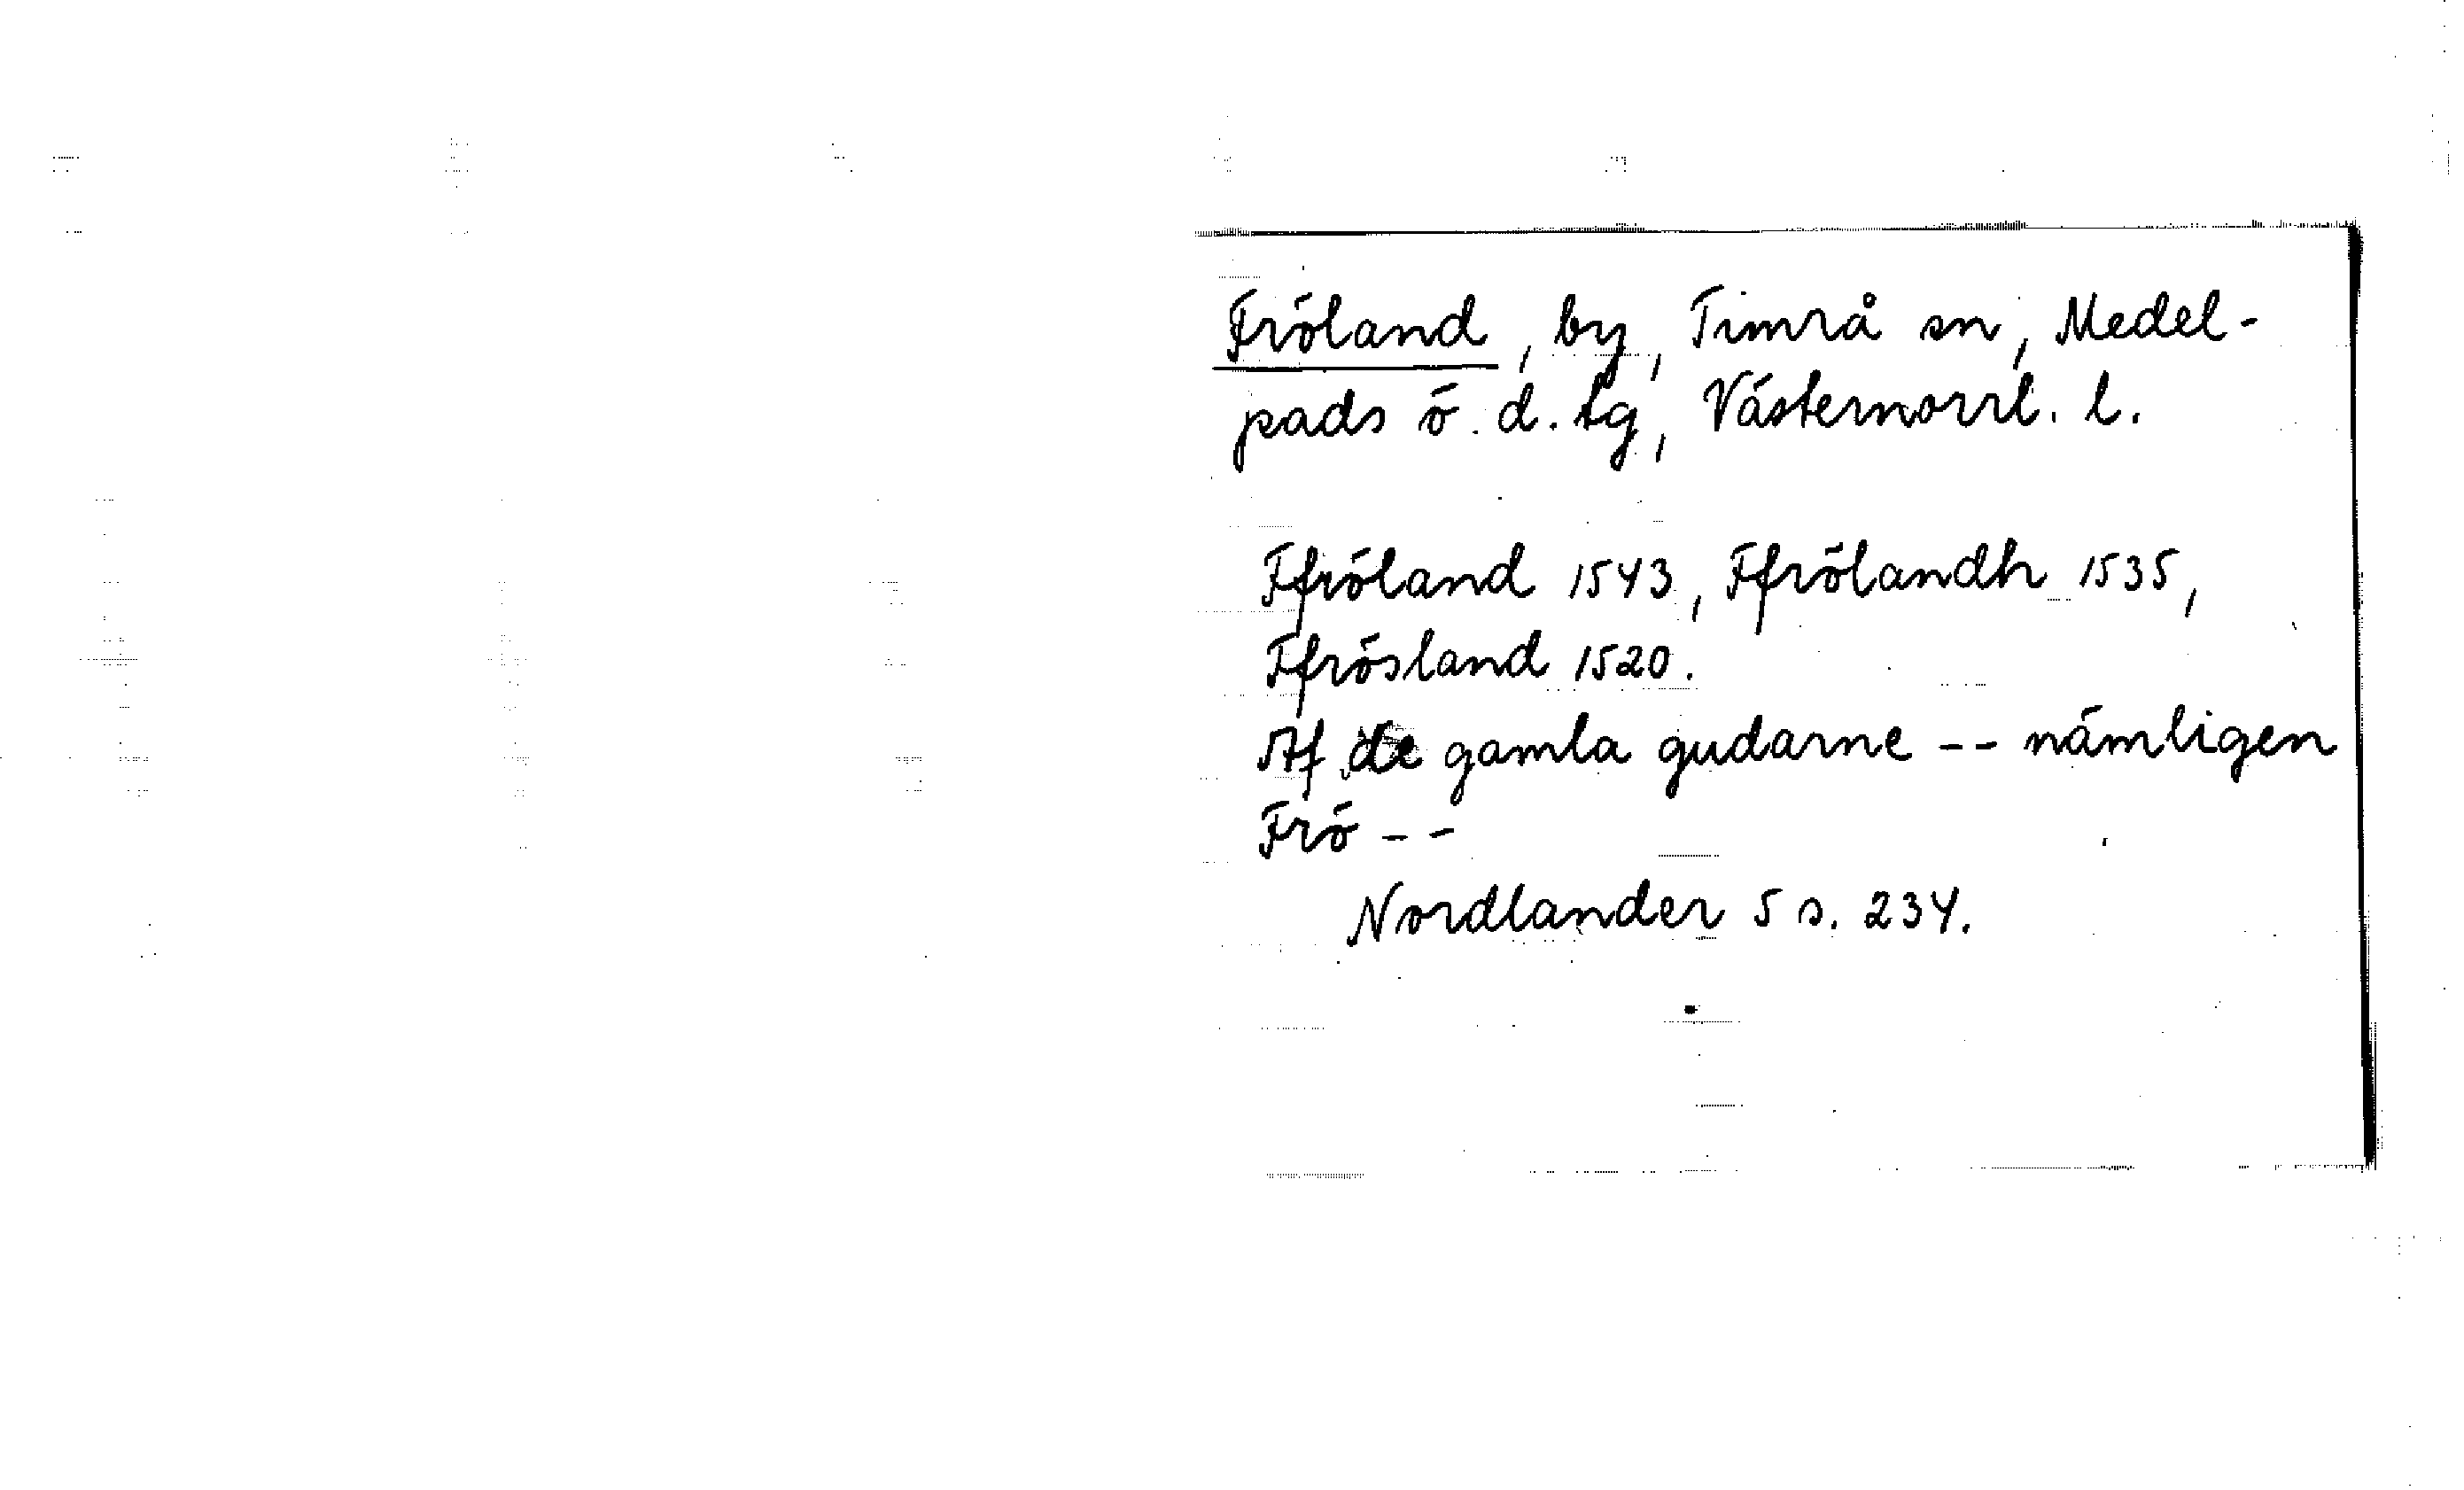 Fröland, by, Timrå sn, Medel-
pads ö. d. tg, Västernorrl. l.
Ffröland 1543, Ffrölandh 1535,
Ffrösland 1520.
Af de gamla gudarne -- nämligen
Frö --
Nordlander 5 s. 234.